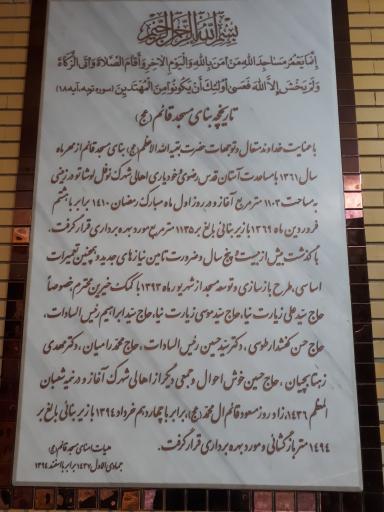 بسم الله الرحمن الرحیم
إِنَّمَا يَعْمُرُ مَسَاجِدَ اللهِ مَنْ آمَنَ بِاللهِ وَالْيَوْمِ الْآخِرِ وَأَقَامَ الصَّلَاةَ وَآتَى الزَّكَاةَ
وَلَمْ يَخْشَ إِلَّا اللهَ فَعَسَى أُولَئِكَ أَنْ يَكُونُوا مِنَ الْمُهْتَدِينَ (سوره توبه، آیه ۱۸)
تاریخچه بنای مسجد قائم (عج)
با عنایت خداوند متعال و توجهات حضرت بقیه الله الاعظم (عج) بنای مسجد قائم از مهرماه
سال ۱۳۶۱ با مساعدت آستان قدس رضوی و خودیاری اهالی شهرک نخل لوشاتو در زمینی
به مساحت ۱۱۰۳ متر مربع آغاز و در روز اول ماه مبارک رمضان ۱۴۱۰ برابر با هشتم
فروردین ماه ۱۳۶۹ با زیربنائی بالغ بر ۱۱۳۵ متر مربع مورد بهره برداری قرار گرفت.
با گذشت بیش از بیست و پنج سال و ضرورت تامین نیازهای جدید و همچنین تعمیرات
اساسی، طرح بازسازی و توسعه مسجد از شهریور ماه ۱۳۹۳ با کمک خیرین محترم خصوصاً
حاج سید علی زیارت نیا، حاج سید موسی زیارت نیا، حاج سید ابراهیم رئیس السادات،
حاج حسن کفشدار طوسی، دکتر سید حسین رئیس السادات، حاج محمد رامیان، دکتر مهدی
زنتابچیان، حاج حسین خوش احوال و جمعی دیگر از اهالی شهرک آغاز و در عید شعبان
المعظم ۱۴۳۶، زاد روز مسعود قائم ال محمد (عج)، برابر با چهاردهم خرداد ۱۳۹۴ با زیربنائی بالغ بر
۱۴۹۴ متر بازگشائی و مورد بهره برداری قرار گرفت.
هیات امنای مسجد قائم (عج)
جمادی الاول ۱۴۳۷ برابر با اسفند ۱۳۹۴